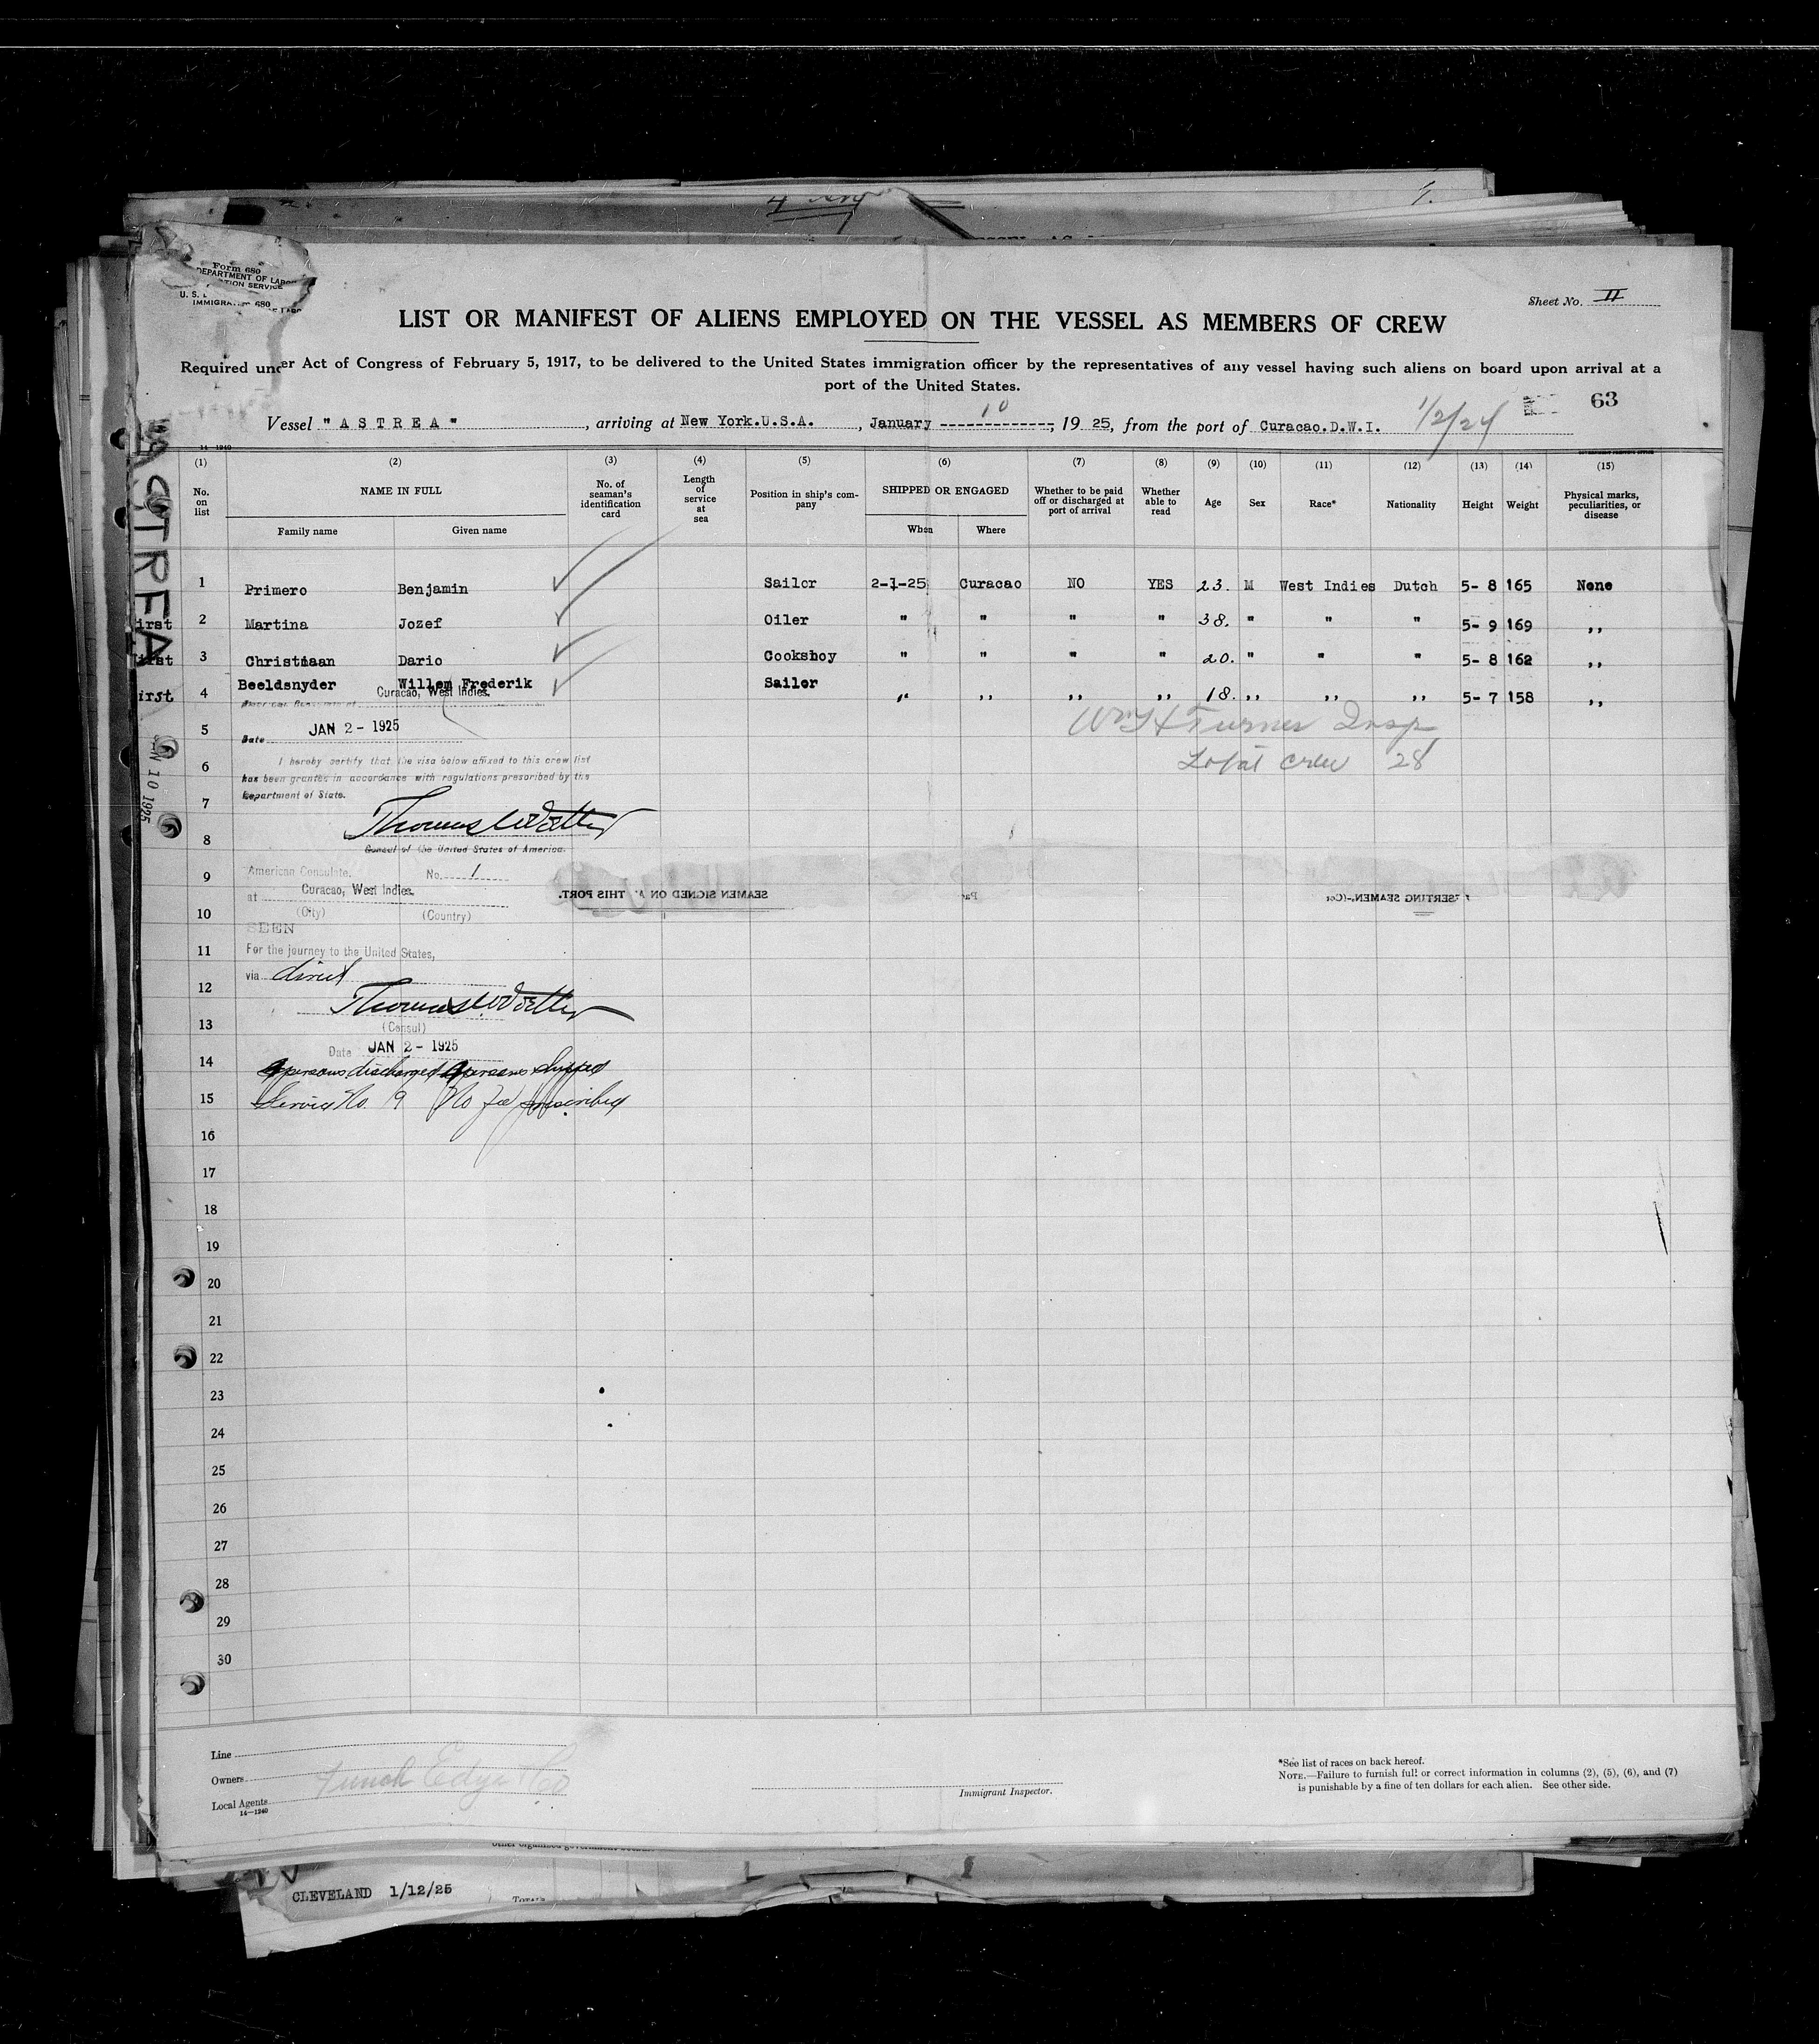 Form 680
DEPARTMENT OF LABOR
U. S.
IMMIGRATION SERVICE
Sheet No. II
LIST OR MANIFEST OF ALIENS EMPLOYED ON THE VESSEL AS MEMBERS OF CREW
Required under Act of Congress of February 5, 1917, to be delivered to the United States immigration officer by the representatives of any vessel having such aliens on board upon arrival at a
port of the United States.
63
Vessel "ASTREA", arriving at New York.U.S.A., January 10, 1925, from the port of Curacao.D.W.I. 1/2/24
14-1240
ASTREA
(1) (2) (3) (4) (5) (6) (7) (8) (9) (10) (11) (12) (13) (14) (15)
No. on list NAME IN FULL No. of seaman's identification card Length of service at sea Position in ship's company SHIPPED OR ENGAGED Whether to be paid off or discharged at port of arrival Whether able to read Age Sex Race* Nationality Height Weight Physical marks, peculiarities, or disease
Family name Given name When Where
1 Primero Benjamin Sailor 2-1-25 Curacao NO YES 23. M West Indies Dutch 5- 8 165 None
irst 2 Martina Jozef Oiler " " " " 38. " " " 5- 9 169 ,,
irst 3 Christiaan Dario Cooksboy " " " " 20. " " " 5- 8 162 ,,
irst 4 Beeldsnyder Willem Frederik Sailor ,, ,, ,, ,, 18. ,, ,, ,, 5- 7 158 ,,
Curacao, West Indies.
5
Date JAN 2 - 1925
Wm H Turner Insp
Total crew 28
6
I hereby certify that the visa below affixed to this crew list
has been granted in accordance with regulations prescribed by the
Department of State.
7
JAN 10 1925
8
Consul of the United States of America.
9
American Consulate. No. 1
at Curacao, West Indies.
SEAMEN SIGNED ON AT THIS PORT.
DESERTING SEAMEN
10
(City) (Country)
SEEN
11
For the journey to the United States,
via direct
12
13
(Consul)
Date JAN 2 - 1925
14
persons discharged persons shipped
15
Service No. 9 No fee prescribed
16
17
18
19
20
21
22
23
24
25
26
27
28
29
30
Line
Owners
Local Agents
14-1240
Funch Edye & Co
Immigrant Inspector.
*See list of races on back hereof.
NOTE.—Failure to furnish full or correct information in columns (2), (5), (6), and (7)
is punishable by a fine of ten dollars for each alien. See other side.
CLEVELAND 1/12/25